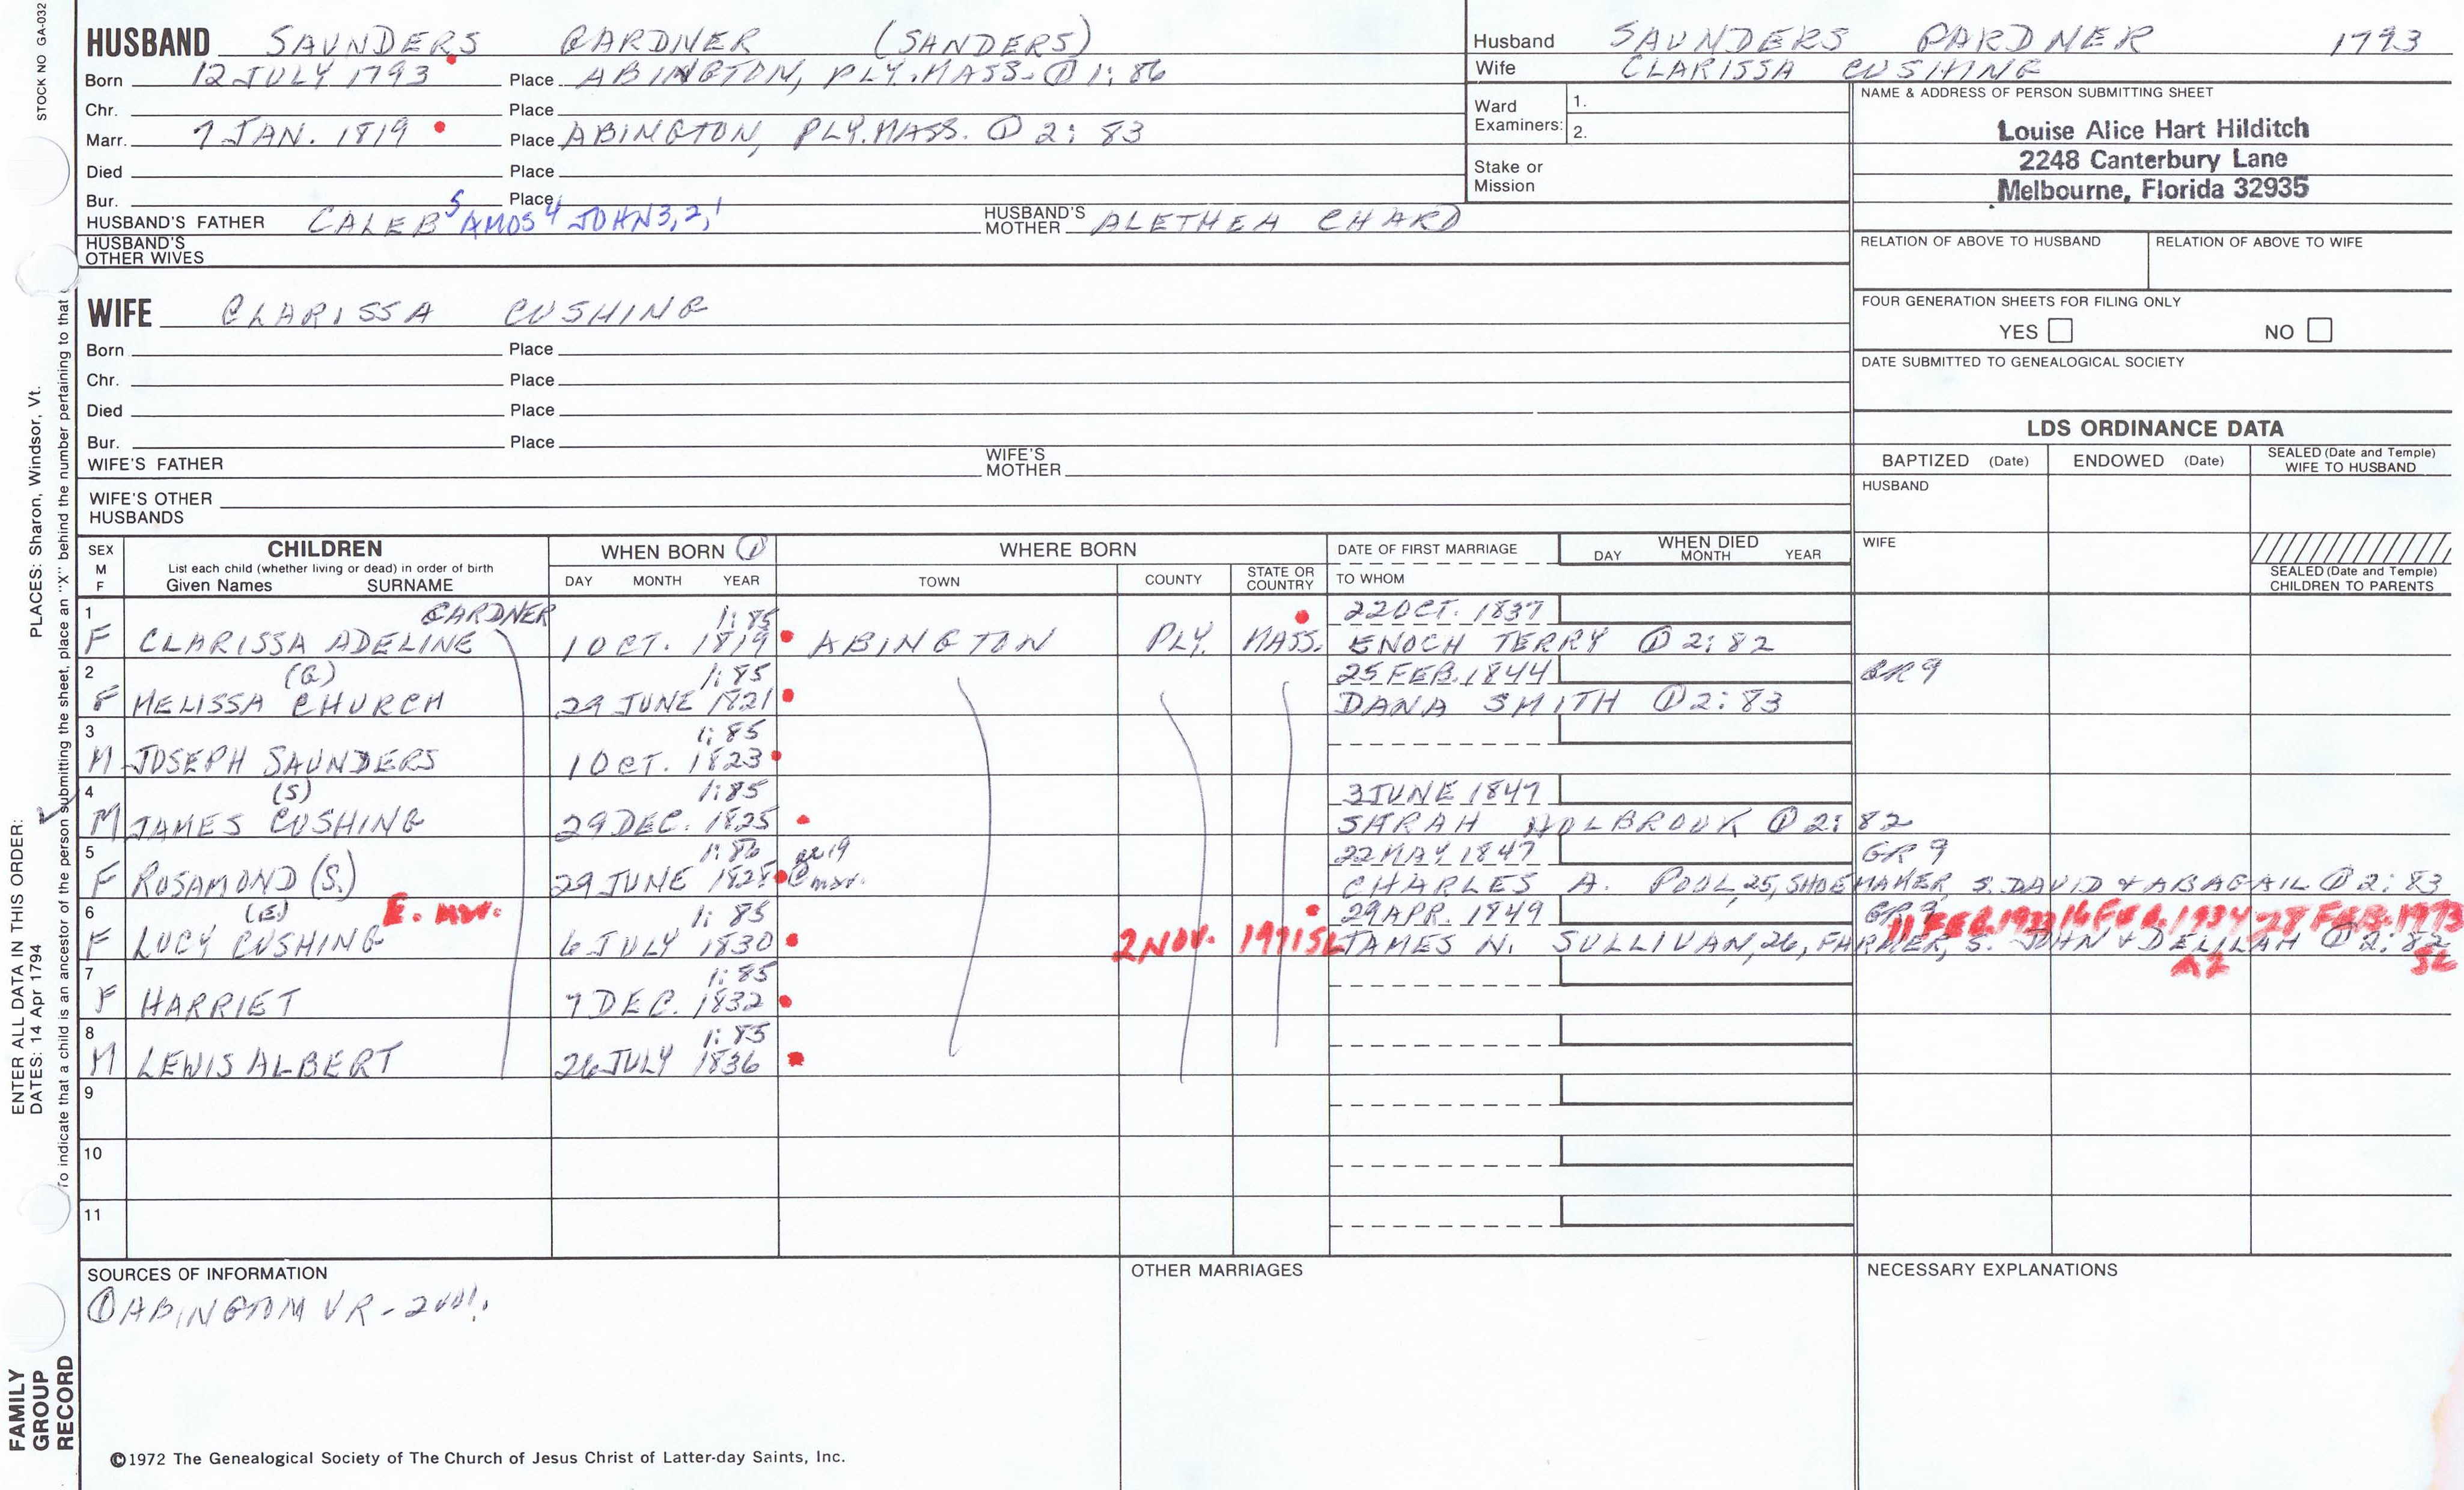 STOCK NO GA-032
HUSBAND SAUNDERS GARDNER (SANDERS)
Born 12 JULY 1793 Place ABINGTON, PLY. MASS. ① 1:86
Chr. Place
Marr. 7 JAN. 1819 Place ABINGTON, PLY. MASS. ① 2:83
Died Place
Bur. Place
HUSBAND'S FATHER CALEB⁵ AMOS⁴ JOHN3,2,1 HUSBAND'S MOTHER ALETHEA CHARD
HUSBAND'S OTHER WIVES
Husband SAUNDERS GARDNER 1793
Wife CLARISSA CUSHING
Ward Examiners: 1.
2.
Stake or Mission
NAME & ADDRESS OF PERSON SUBMITTING SHEET
Louise Alice Hart Hilditch
2248 Canterbury Lane
Melbourne, Florida 32935
RELATION OF ABOVE TO HUSBAND RELATION OF ABOVE TO WIFE
FOUR GENERATION SHEETS FOR FILING ONLY
YES NO
DATE SUBMITTED TO GENEALOGICAL SOCIETY
WIFE CLARISSA CUSHING
Born Place
Chr. Place
Died Place
Bur. Place
WIFE'S FATHER WIFE'S MOTHER
WIFE'S OTHER HUSBANDS
LDS ORDINANCE DATA
BAPTIZED (Date) ENDOWED (Date) SEALED (Date and Temple) WIFE TO HUSBAND
HUSBAND
WIFE
SEALED (Date and Temple) CHILDREN TO PARENTS
SEX M F CHILDREN WHEN BORN ① WHERE BORN DATE OF FIRST MARRIAGE WHEN DIED
List each child (whether living or dead) in order of birth
Given Names SURNAME DAY MONTH YEAR TOWN COUNTY STATE OR COUNTRY TO WHOM DAY MONTH YEAR
1 GARDNER 1:85 22 OCT. 1837
F CLARISSA ADELINE 1 OCT. 1819 ABINGTON PLY. MASS. ENOCH TERRY ① 2:82
2 (G) 1:85 25 FEB. 1844 GR 9
F MELISSA CHURCH 29 JUNE 1821 DANA SMITH ① 2:83
3 1:85
M JOSEPH SAUNDERS 1 OCT. 1823
4 (S) 1:85 3 JUNE 1847
M JAMES CUSHING 29 DEC. 1825 SARAH HOLBROOK ① 2:82
5 1:86 22 MAY 1847 GR 9
F ROSAMOND (S.) 29 JUNE 1828 mar. CHARLES A. POOL, 25, SHOEMAKER, S. DAVID & ABAGAIL ① 2:83
6 (E) E. mar. 1:85 29 APR. 1849 GR 9
F LUCY CUSHING 6 JULY 1830 2 NOV. 1971 SL JAMES N. SULLIVAN, 26, FARMER, S. JOHN & DELILAH ① 2:82
28 FEB. 1973 SL
7 1:85
F HARRIET 7 DEC. 1832
8 1:85
M LEWIS ALBERT 26 JULY 1836
9
10
11
SOURCES OF INFORMATION OTHER MARRIAGES NECESSARY EXPLANATIONS
① ABINGTON VR - 2 vol.
©1972 The Genealogical Society of The Church of Jesus Christ of Latter-day Saints, Inc.
PLACES: Sharon, Windsor, Vt.
ENTER ALL DATA IN THIS ORDER:
DATES: 14 Apr 1794
To indicate that a child is an ancestor of the person submitting the sheet, place an "X" behind the number pertaining to that
FAMILY GROUP RECORD